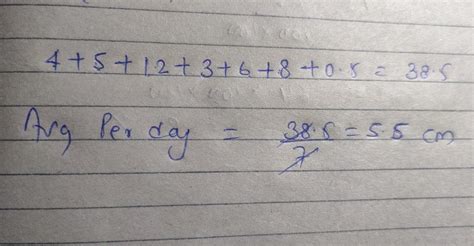 4 + 5 + 12 + 3 + 6 + 8 + 0.5 = 38.5
Avg Per day = 38.5/7 = 5.5 cm